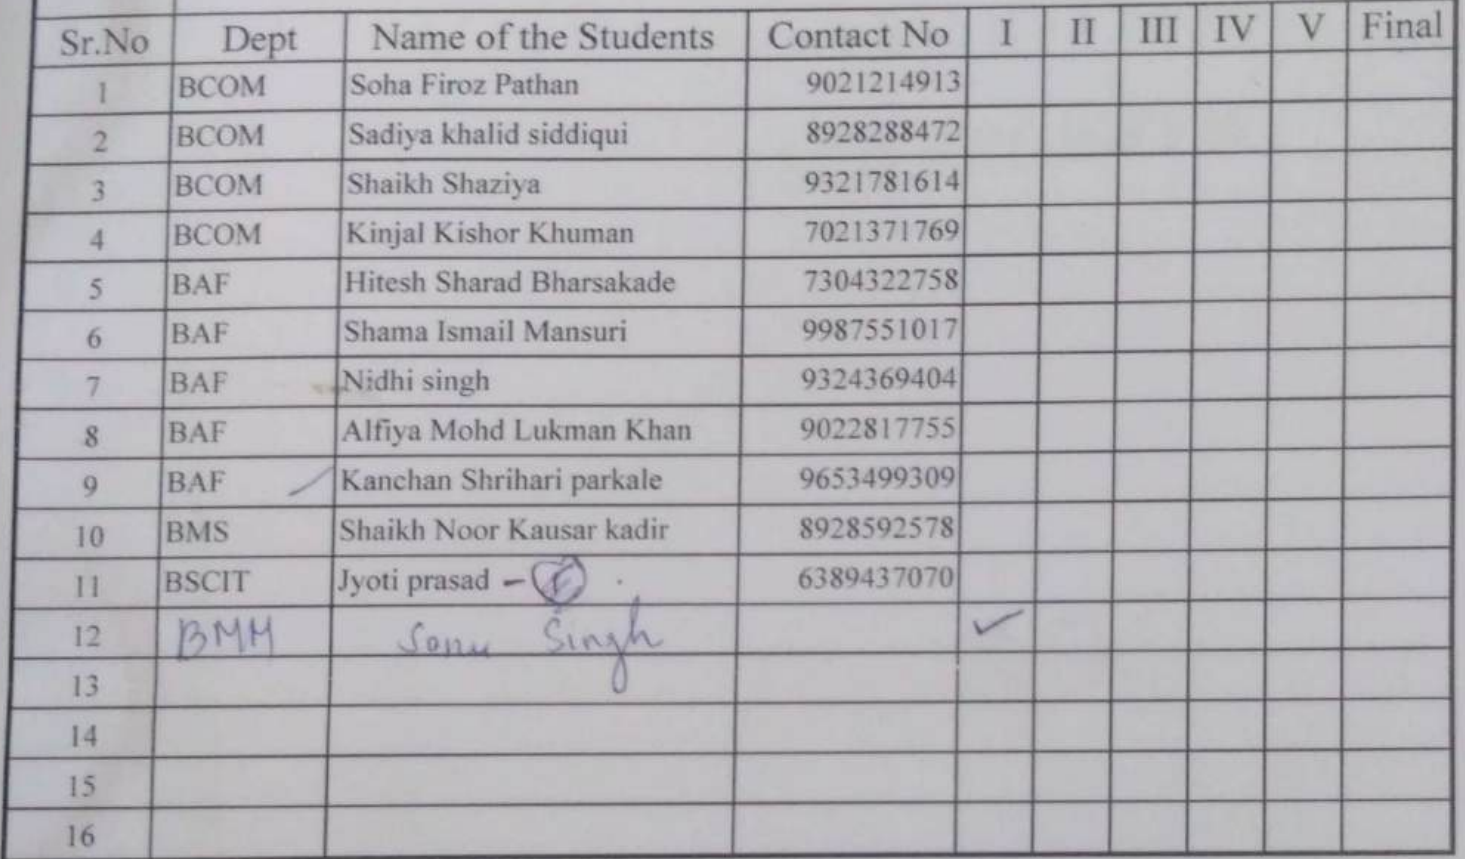 Sr.No Dept Name of the Students Contact No I II III IV V Final
1 BCOM Soha Firoz Pathan 9021214913
2 BCOM Sadiya khalid siddiqui 8928288472
3 BCOM Shaikh Shaziya 9321781614
4 BCOM Kinjal Kishor Khuman 7021371769
5 BAF Hitesh Sharad Bharsakade 7304322758
6 BAF Shama Ismail Mansuri 9987551017
7 BAF Nidhi singh 9324369404
8 BAF Alfiya Mohd Lukman Khan 9022817755
9 BAF Kanchan Shrihari parkale 9653499309
10 BMS Shaikh Noor Kausar kadir 8928592578
11 BSCIT Jyoti prasad – 6389437070
12 BMM Sonu Singh ✓
13
14
15
16